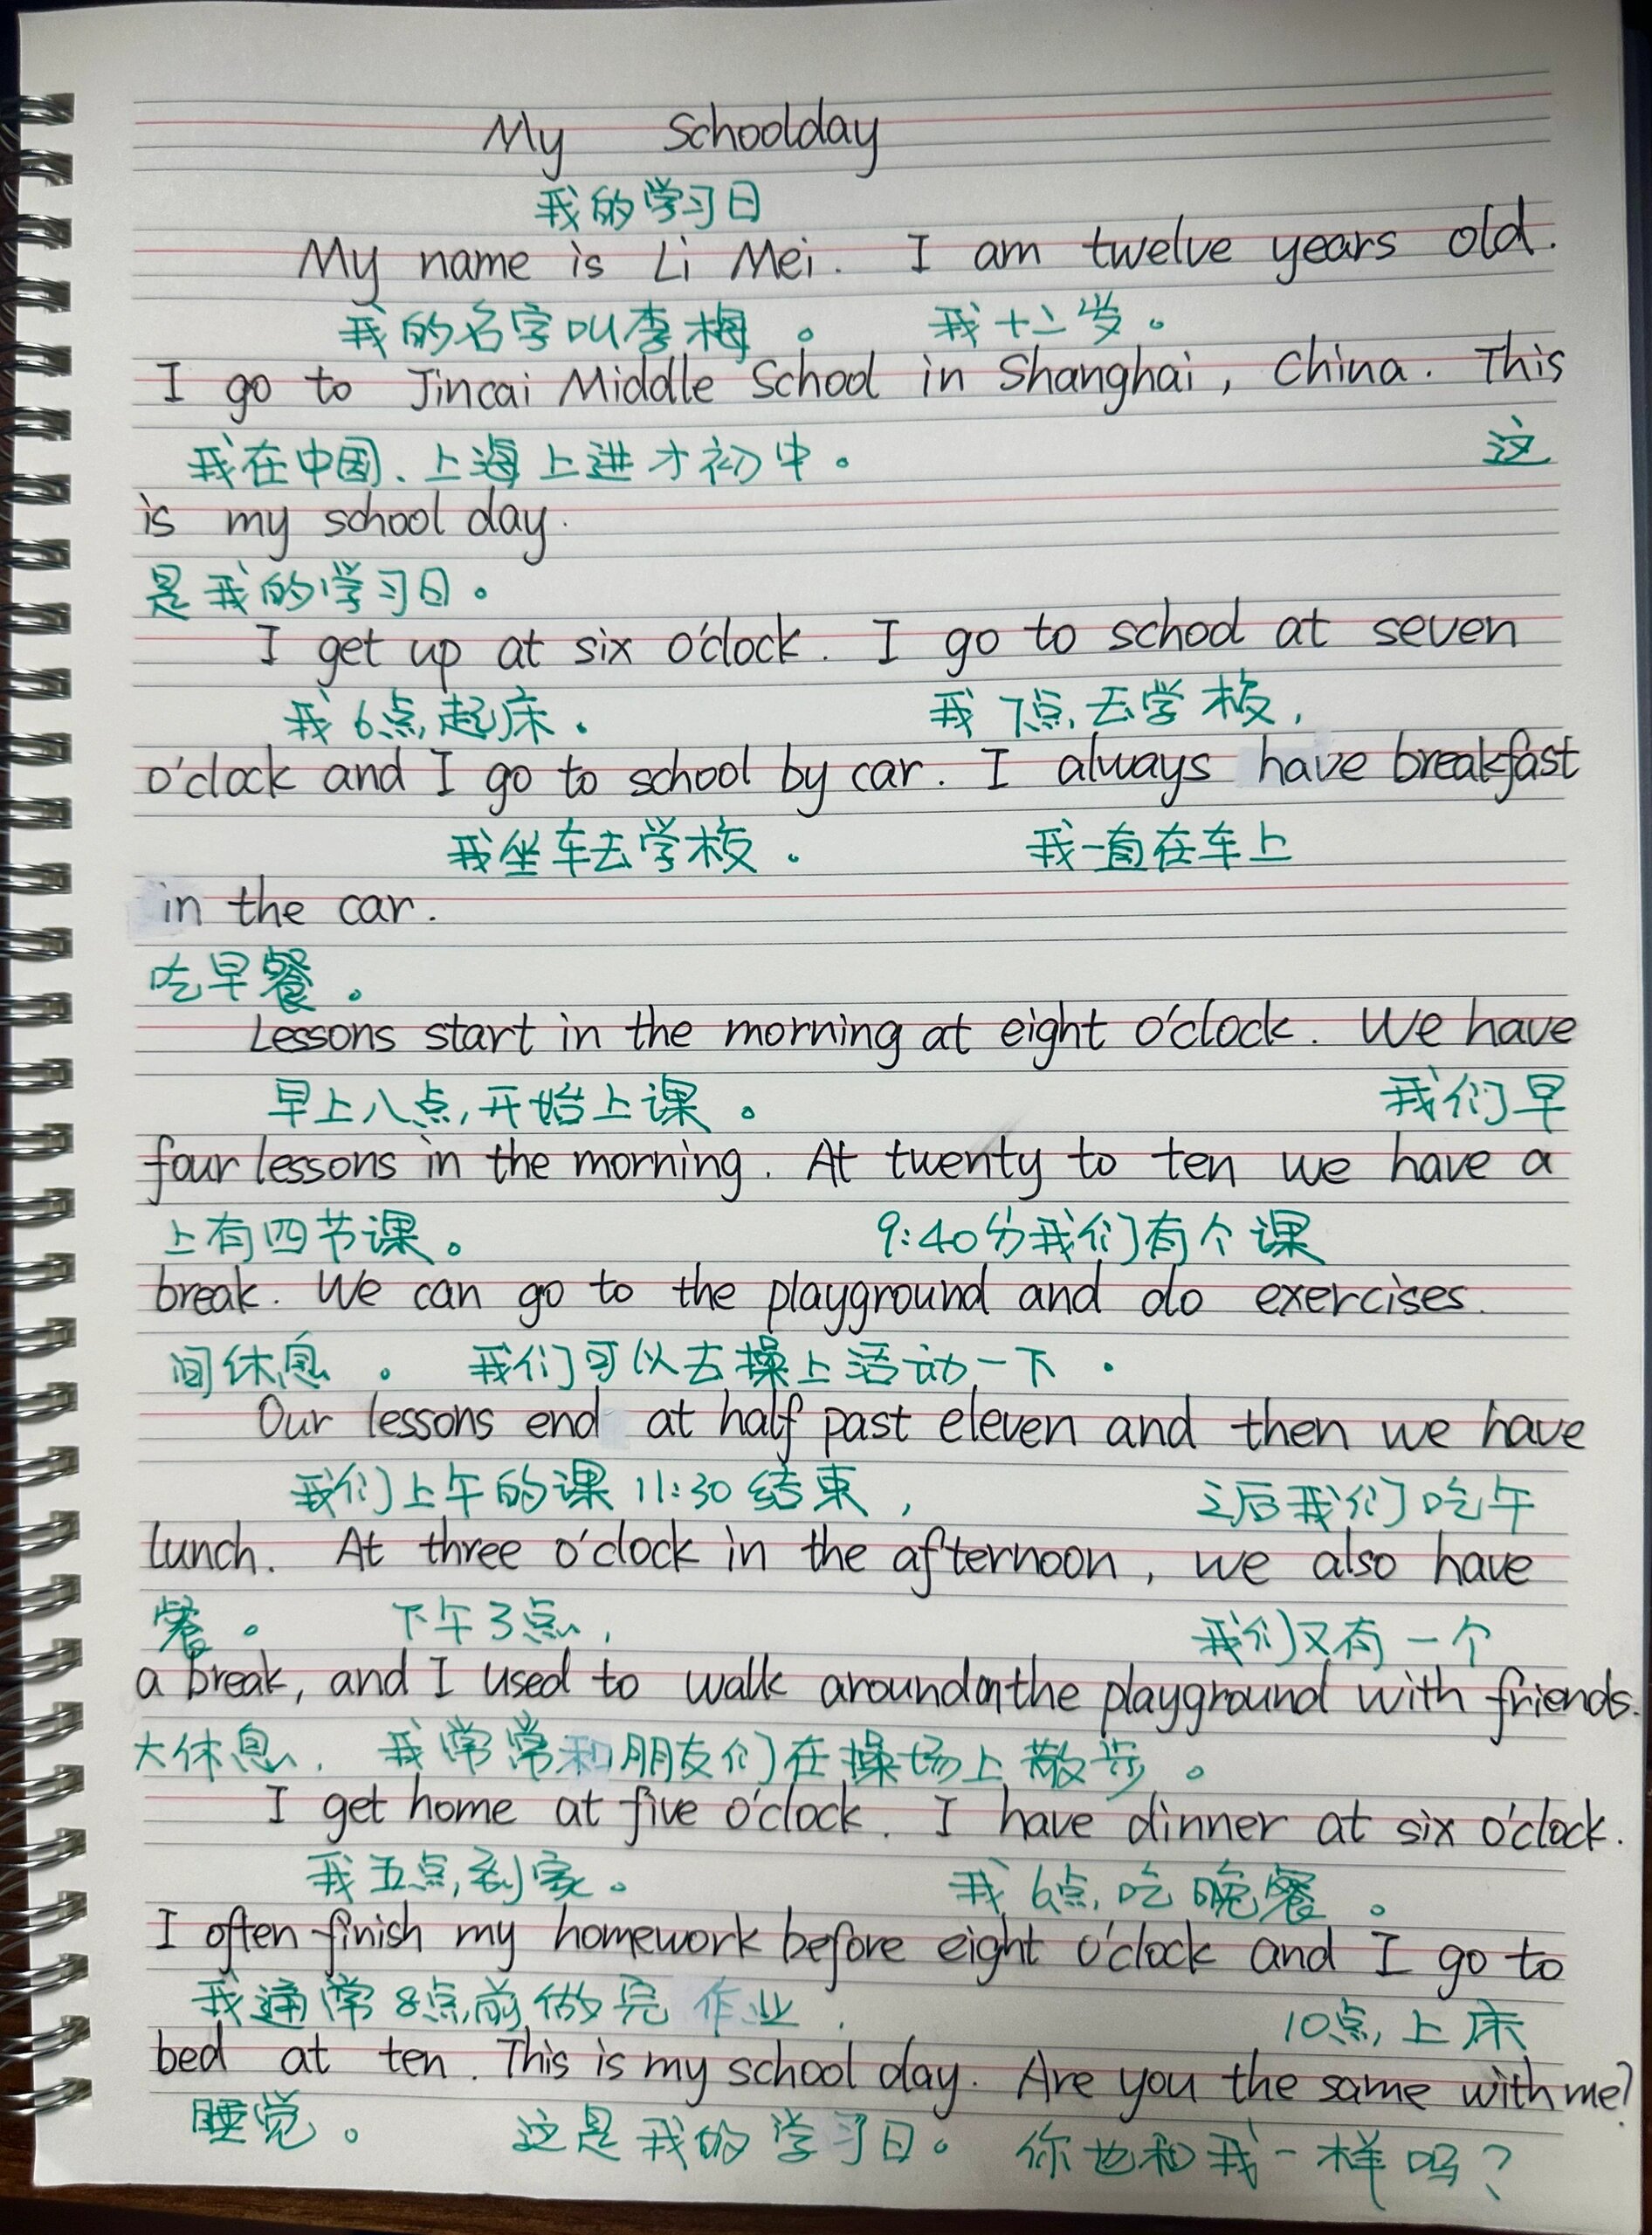 My Schoolday
我的学习日
My name is Li Mei. I am twelve years old.
我的名字叫李梅。 我十二岁。
I go to Jincai Middle School in Shanghai, China. This
我在中国、上海上进才初中。 这
is my school day.
是我的学习日。
I get up at six o'clock. I go to school at seven
我6点起床. 我7点去学校,
o'clock and I go to school by car. I always have breakfast
我坐车去学校. 我一直在车上
in the car.
吃早餐。
Lessons start in the morning at eight o'clock. We have
早上八点,开始上课。 我们早
four lessons in the morning. At twenty to ten we have a
上有四节课。 9:40分我们有个课
break. We can go to the playground and do exercises.
间休息。 我们可以去操上活动一下.
Our lessons end at half past eleven and then we have
我们上午的课11:30结束, 之后我们吃午
lunch. At three o'clock in the afternoon, we also have
餐。 下午3点, 我们又有一个
a break, and I used to walk around on the playground with friends.
大休息, 我常常和朋友们在操场上散步。
I get home at five o'clock. I have dinner at six o'clock.
我五点到家。 我6点吃晚餐。
I often finish my homework before eight o'clock and I go to
我通常8点前做完作业. 10点上床
bed at ten. This is my school day. Are you the same with me?
睡觉。 这是我的学习日。 你也和我一样吗?